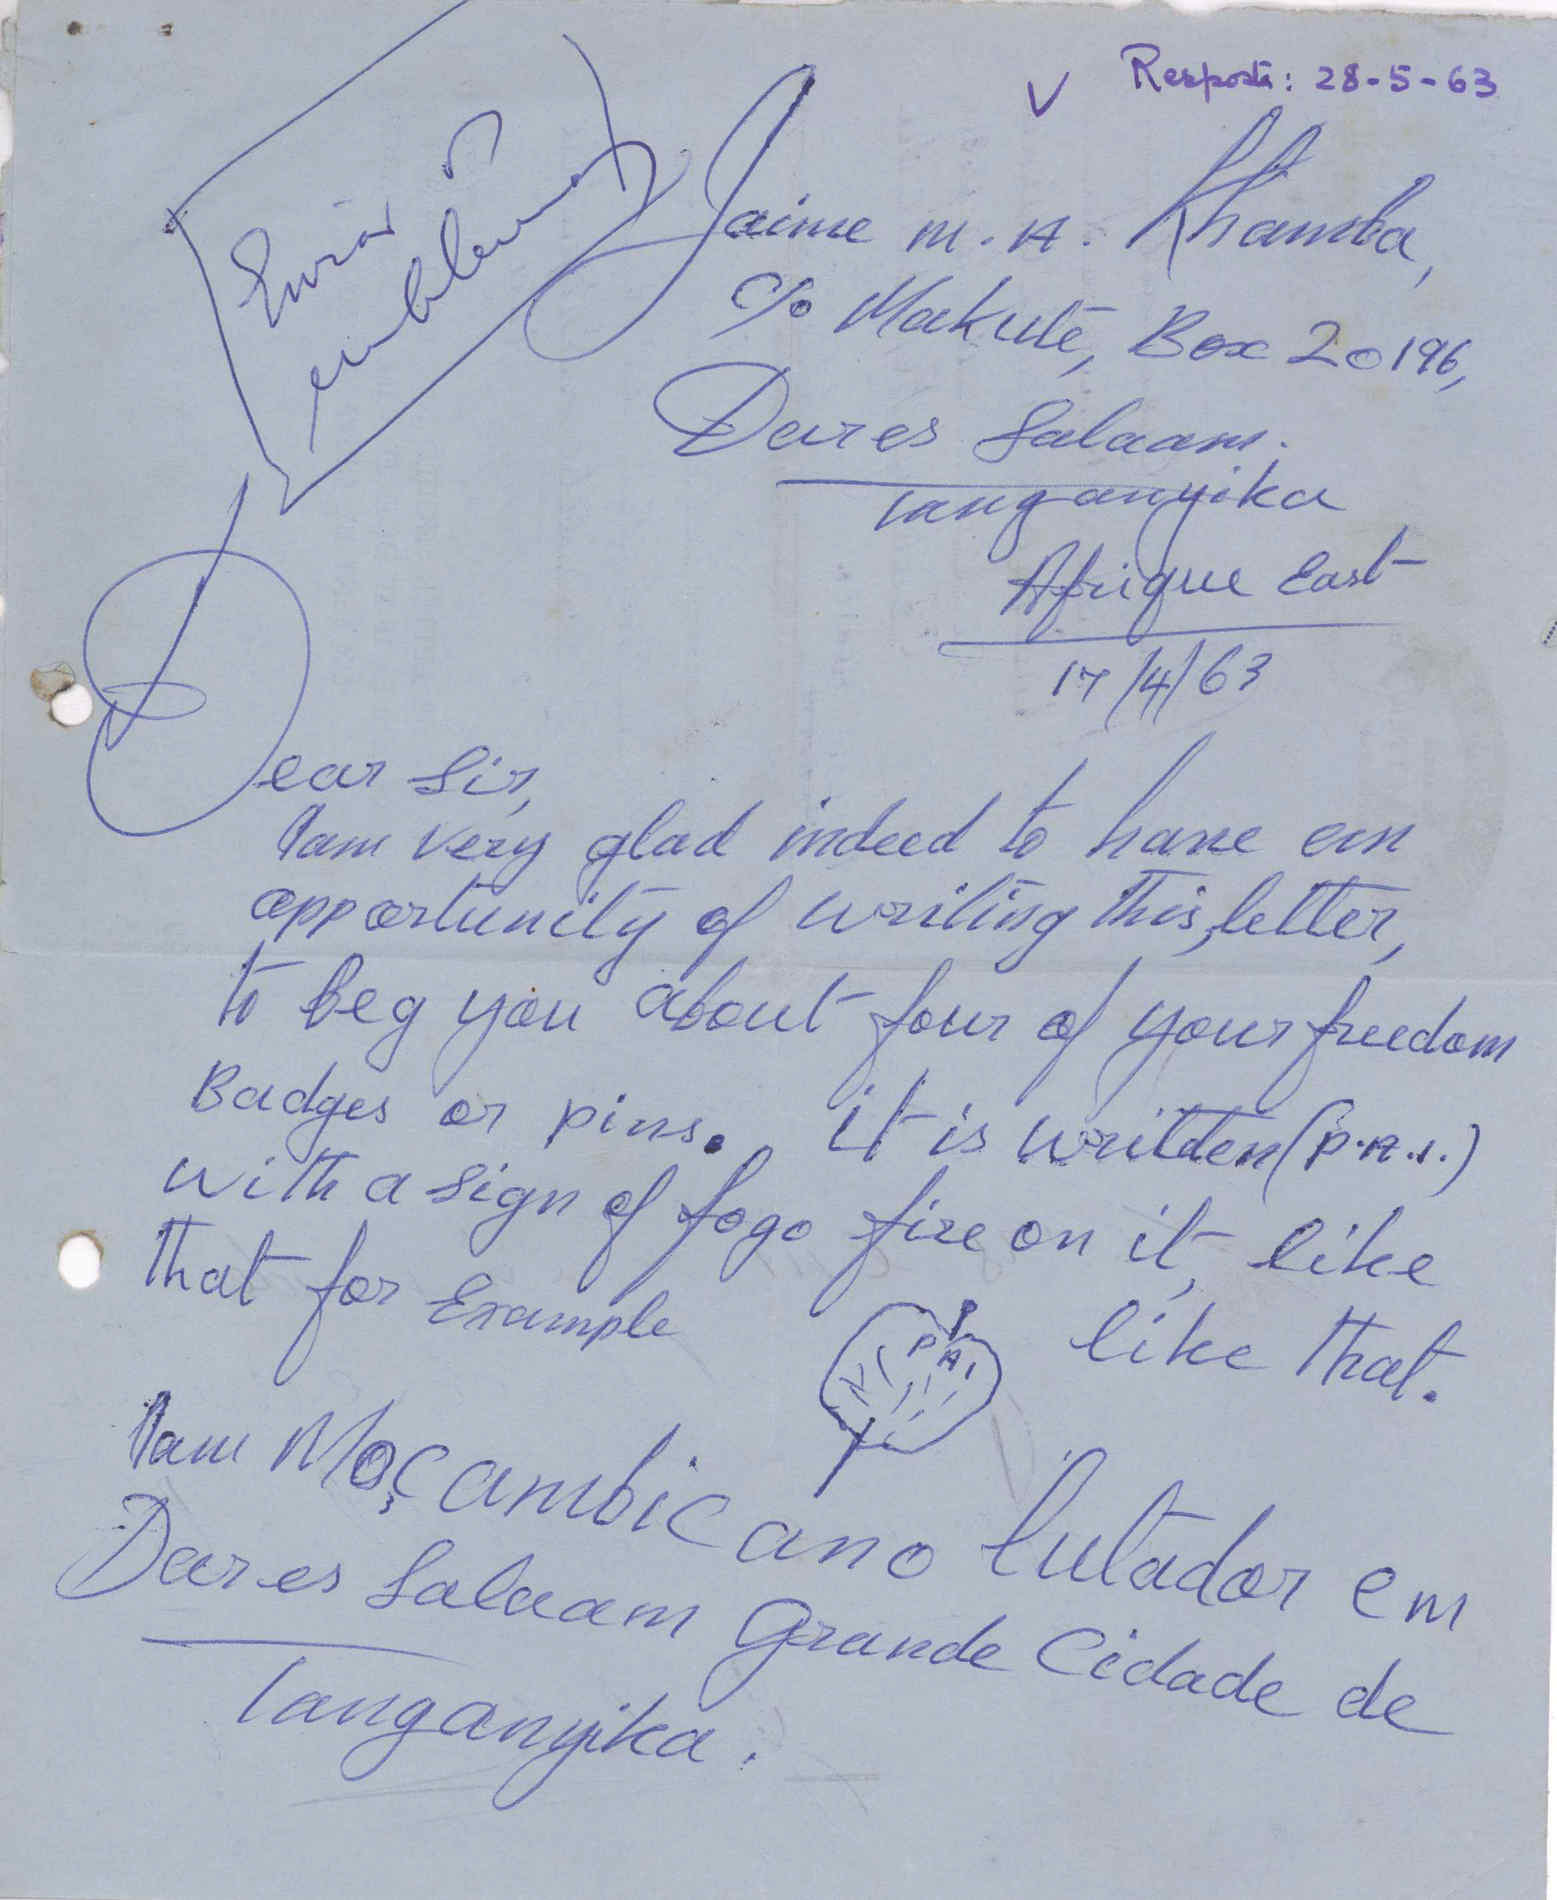 ✓ Resposta: 28-5-63
Enviar
emblemas
Jaime M. A. Khamba,
c/o Makute, Box 20196,
Dar es Salaam.
Tanganyika
Afrique East
17/4/63
Dear Sir,
I am very glad indeed to have an
opportunity of writing this, letter,
to beg you about four of your freedom
Badges or pins. it is written (P.A.I.)
with a sign of fogo fire on it, like
that for Example like that.
P A I
I am Moçambicano lutador em
Dar es Salaam Grande Cidade de
Tanganyika.